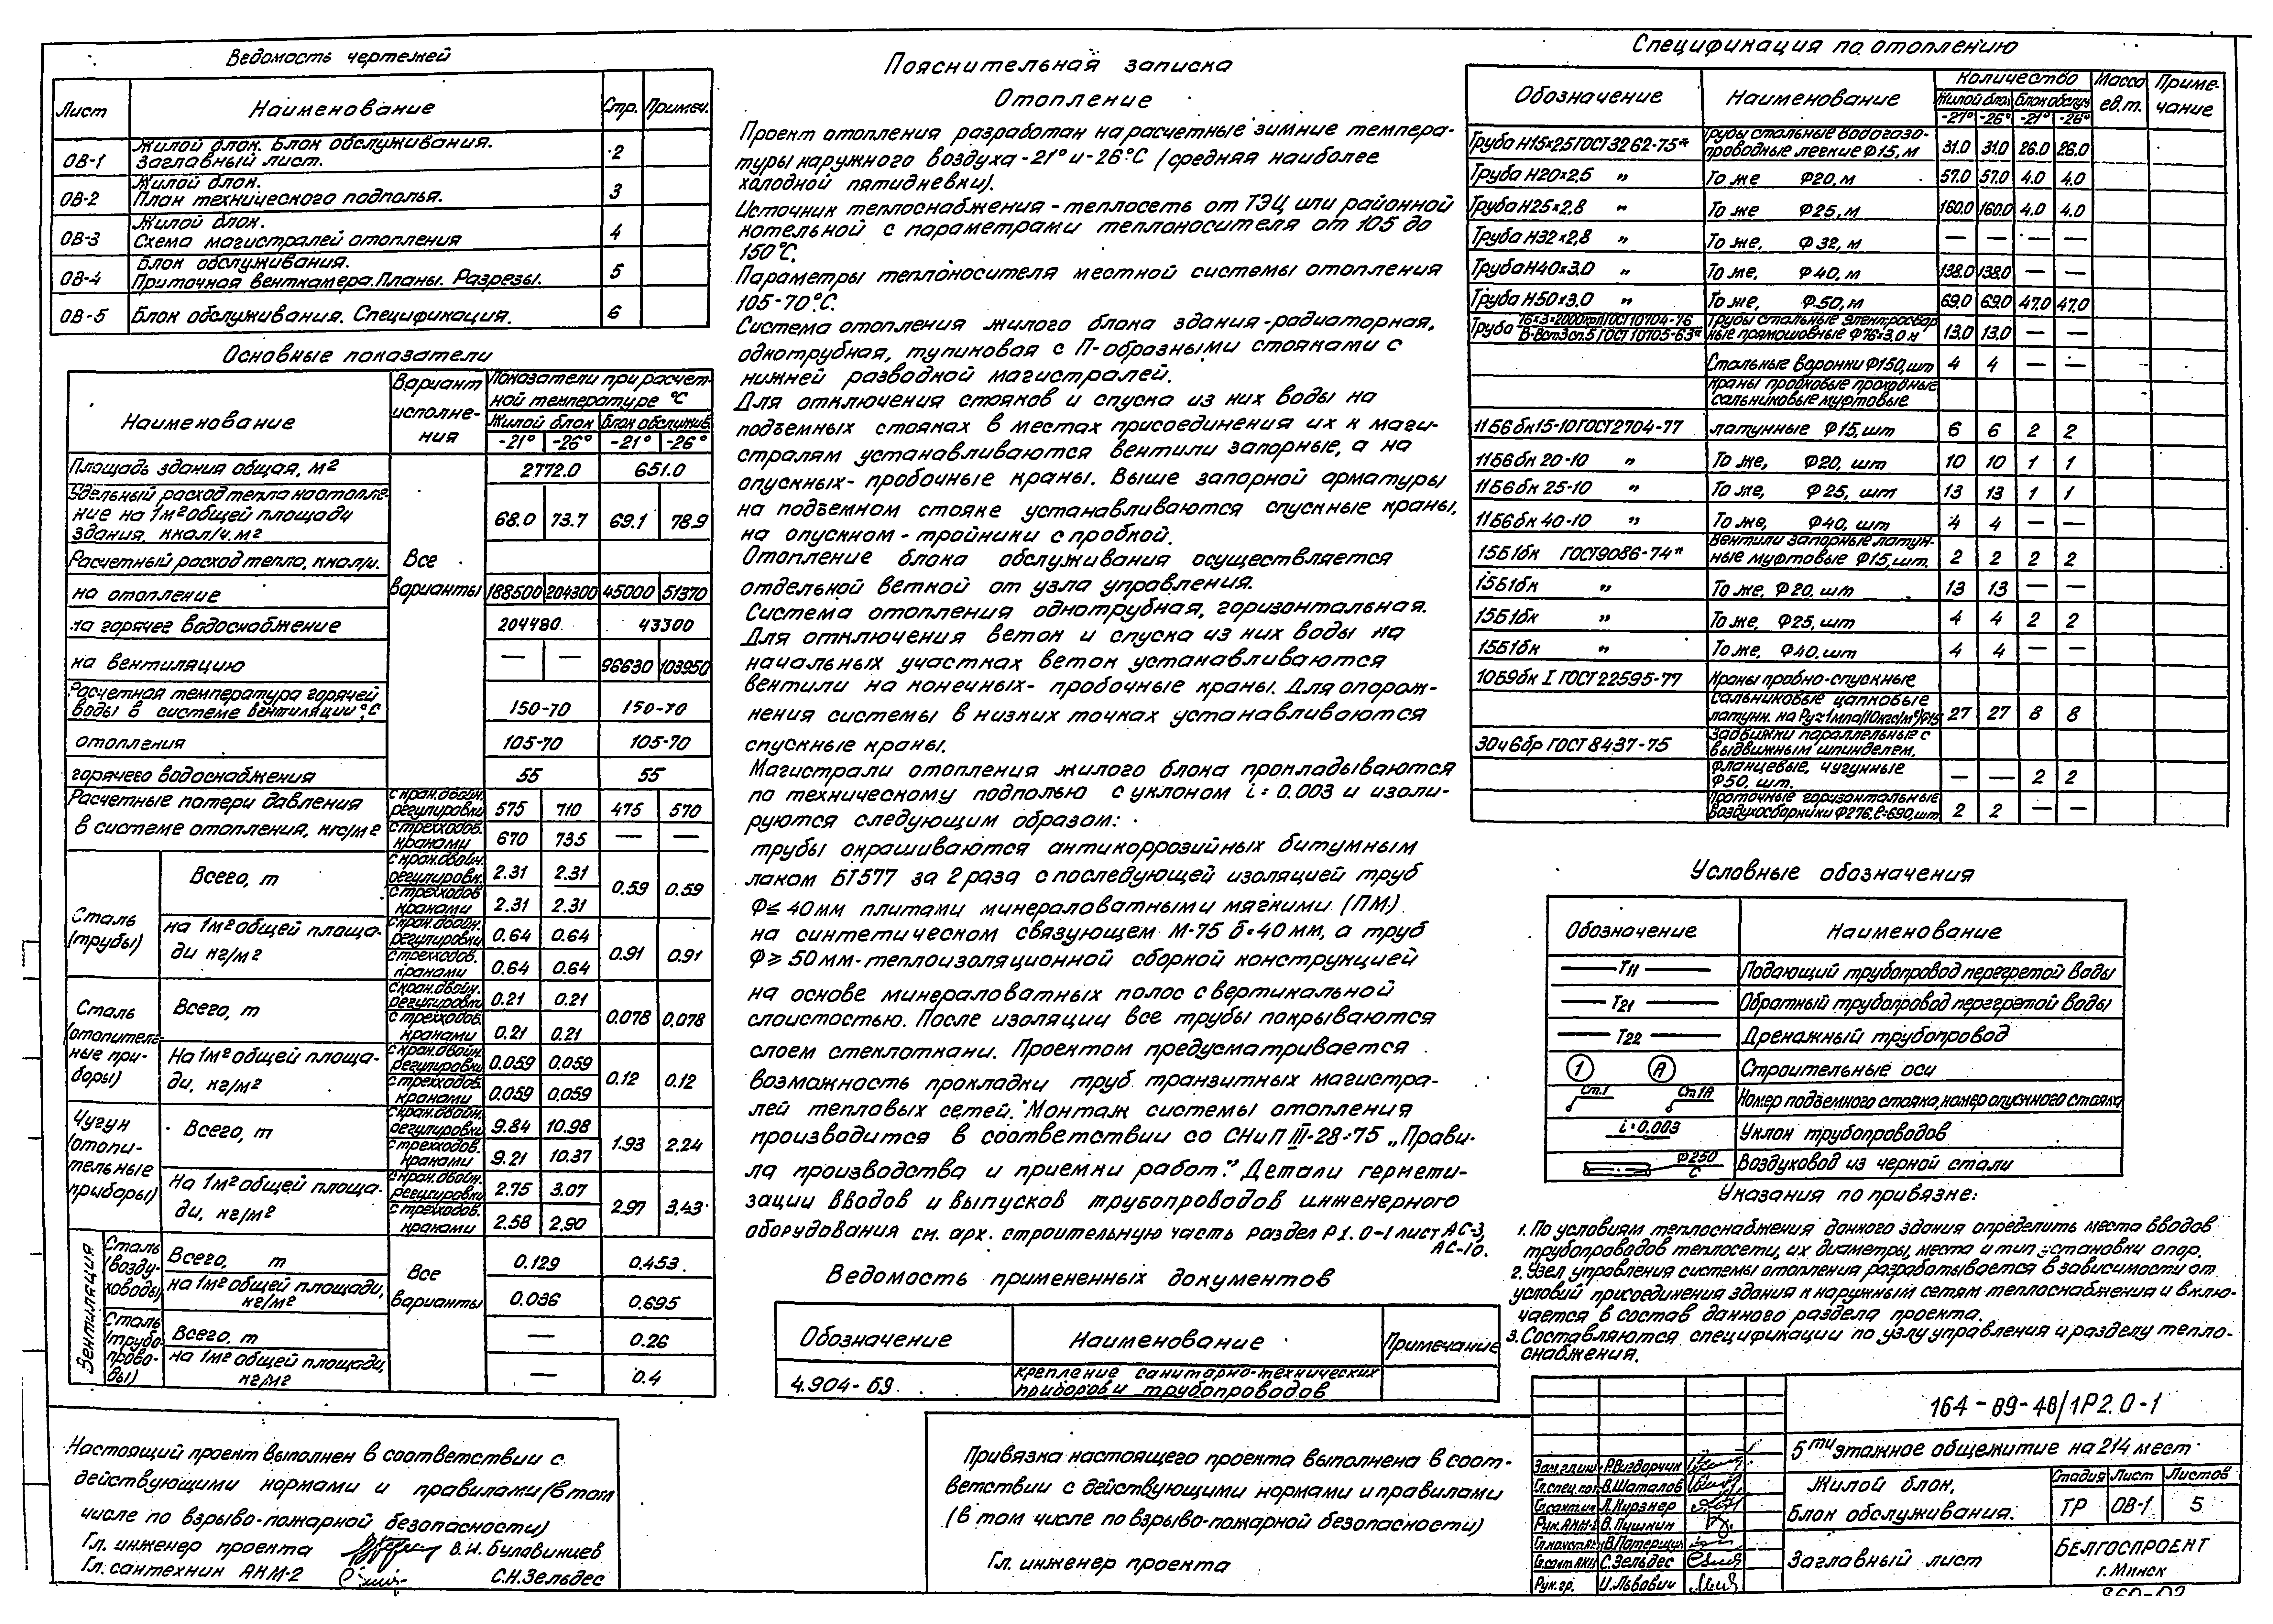 Ведомость чертежей
Лист Наименование Стр. Примеч.
ОВ-1 Жилой блок. Блок обслуживания. Заглавный лист. 2
ОВ-2 Жилой блок. План технического подполья. 3
ОВ-3 Жилой блок. Схема магистралей отопления 4
ОВ-4 Блок обслуживания. Приточная венткамера. Планы. Разрезы. 5
ОВ-5 Блок обслуживания. Спецификация. 6
Основные показатели
Наименование Вариант исполнения Показатели при расчетной температуре °С
Жилой блок Блок обслужив
-21° -26° -21° -26°
Площадь здания общая, м² 2772.0 651.0
Удельный расход тепла на отопление на 1м² общей площади здания, ккал/ч.м² 68.0 73.7 69.1 78.9
Расчетный расход тепла, ккал/ч. Все варианты
на отопление 188500 204300 45000 51370
на горячее водоснабжение 204480 43300
на вентиляцию — — 96630 103950
Расчетная температура горячей воды в системе вентиляции °С 150-70 150-70
отопления 105-70 105-70
горячего водоснабжения 55 55
Расчетные потери давления в системе отопления, кгс/м²
с кран. двойн. регулировки 575 710 475 570
с трехходов. кранами 670 735 — —
Сталь (трубы)
Всего, т
с кран. двойн. регулировк. 2.31 2.31 0.59 0.59
с трехходов. кранами 2.31 2.31
на 1м² общей площади кг/м²
с кран. двойн. регулировки 0.64 0.64 0.91 0.91
с трехходов. кранами 0.64 0.64
Сталь (отопительные приборы)
Всего, т
с кран. двойн. регулировки 0.21 0.21 0.078 0.078
с трехходов. кранами 0.21 0.21
На 1м² общей площади, кг/м²
с кран. двойн. регулировки 0.059 0.059 0.12 0.12
с трехходов. кранами 0.059 0.059
Чугун (отопительные приборы)
Всего, т
с кран. двойн. регулировки 9.84 10.98 1.93 2.24
с трехходов. кранами 9.21 10.37
На 1м² общей площади, кг/м²
с кран. двойн. регулировки 2.75 3.07 2.97 3.43
с трехходов. кранами 2.58 2.90
Вентиляция
Сталь (воздуховоды) Всего, т Все варианты 0.129 0.453
на 1м² общей площади, кг/м² 0.036 0.695
Сталь (трубопроводы) Всего, т — 0.26
на 1м² общей площади, кг/м² — 0.4
Настоящий проект выполнен в соответствии с
действующими нормами и правилами (в том
числе по взрыво-пожарной безопасности)
Гл. инженер проекта В.И. Булавинцев
Гл. сантехник АКМ-2 С.Н. Зельдес
Пояснительная записка
Отопление
Проект отопления разработан на расчетные зимние темпера-
туры наружного воздуха -21° и -26°С (средняя наиболее
холодной пятидневки).
Источник теплоснабжения - теплосеть от ТЭЦ или районной
котельной с параметрами теплоносителя от 105 до
150°С.
Параметры теплоносителя местной системы отопления
105-70°С.
Система отопления жилого блока здания - радиаторная,
однотрубная, тупиковая с П-образными стояками с
нижней разводкой магистралей.
Для отключения стояков и спуска из них воды на
подъемных стояках в местах присоединения их к маги-
стралям устанавливаются вентили запорные, а на
опускных - пробочные краны. Выше запорной арматуры
на подъемном стояке устанавливаются спускные краны,
на опускном - тройники с пробкой.
Отопление блока обслуживания осуществляется
отдельной веткой от узла управления.
Система отопления однотрубная, горизонтальная.
Для отключения веток и спуска из них воды на
начальных участках веток устанавливаются
вентили на конечных - пробочные краны. Для опорож-
нения системы в низких точках устанавливаются
спускные краны.
Магистрали отопления жилого блока прокладываются
по техническому подполью с уклоном i = 0.003 и изоли-
руются следующим образом:
трубы окрашиваются антикоррозийных битумным
лаком БТ577 за 2 раза с последующей изоляцией труб
Ф ≤ 40мм плитами минераловатными мягкими (ПМ)
на синтетическом связующем М-75 б=40 мм, а труб
Ф ≥ 50мм - теплоизоляционной сборной конструкцией
на основе минераловатных полос с вертикальной
слоистостью. После изоляции все трубы покрываются
слоем стеклоткани. Проектом предусматривается
возможность прокладки труб транзитных магистра-
лей тепловых сетей. Монтаж системы отопления
производится в соответствии со СНиП III-28-75 „Прави-
ла производства и приемки работ.” Детали гермети-
зации вводов и выпусков трубопроводов инженерного
оборудования см. арх. строительную часть раздел Р1.0-1 лист АС-3,
АС-10.
Ведомость примененных документов
Обозначение Наименование Примечание
4.904-69 крепление санитарно-технических приборов и трубопроводов
Привязка настоящего проекта выполнена в соот-
ветствии с действующими нормами и правилами
(в том числе по взрыво-пожарной безопасности)
Гл. инженер проекта
Спецификация по отоплению
Обозначение Наименование Количество Масса ед.т. Примечание
Жилой блок Блок обслуж
-21° -26° -21° -26°
Труба Н15×2.5 ГОСТ 3262-75* Трубы стальные водогазопроводные легкие Ф15, м 31.0 31.0 26.0 26.0
Труба Н20×2.5 „ То же Ф20, м 57.0 57.0 4.0 4.0
Труба Н25×2,8 „ То же Ф25, м 160.0 160.0 4.0 4.0
Труба Н32×2,8 „ То же, Ф32, м — — — —
Труба Н40×3.0 „ То же, Ф40, м 138.0 138.0 — —
Труба Н50×3.0 „ То же, Ф50, м 69.0 69.0 47.0 47.0
Труба 76×3×2000кр ГОСТ 10704-76 / В-Вст3сп.5 ГОСТ 10705-63* Трубы стальные электросварные прямошовные Ф76×3.0 м 13.0 13.0 — —
Стальные воронки Ф150, шт 4 4 — —
краны пробковые проходные сальниковые муфтовые
11Б6бк15-10 ГОСТ 2704-77 латунные Ф15, шт 6 6 2 2
11Б6бк 20-10 „ То же, Ф20, шт 10 10 1 1
11Б6бк 25-10 „ То же, Ф25, шт 13 13 1 1
11Б6бк 40-10 „ То же, Ф40, шт 4 4 — —
15Б1бк ГОСТ 9086-74* Вентили запорные латунные муфтовые Ф15, шт. 2 2 2 2
15Б1бк „ То же, Ф20, шт 13 13 — —
15Б1бк „ То же, Ф25, шт 4 4 2 2
15Б1бк „ То же, Ф40, шт 4 4 — —
10Б9бк I ГОСТ 22595-77 Краны пробно-спускные
сальниковые цапковые латунн. на Ру=1мпа(10кгс/м²)Ф15 27 27 8 8
30ч6бр ГОСТ 8437-75 Задвижки параллельные с выдвижным шпинделем,
фланцевые, чугунные Ф50, шт. — — 2 2
Проточные горизонтальные воздухосборники Ф276, ℓ=690, шт 2 2 — —
Условные обозначения
Обозначение Наименование
Т11 Подающий трубопровод перегретой воды
Т21 Обратный трубопровод перегретой воды
Т22 Дренажный трубопровод
1 А Строительные оси
Ст.1 Ст.1А Номер подъемного стояка, номер опускного стояка
i=0.003 Уклон трубопроводов
Ф250 С Воздуховод из черной стали
Указания по привязке:
1. По условиям теплоснабжения данного здания определить места вводов
трубопроводов теплосети, их диаметры, места и тип установки опор.
2. Узел управления системы отопления разрабатывается в зависимости от
условий присоединения здания к наружным сетям теплоснабжения и вклю-
чается в состав данного раздела проекта.
3. Составляются спецификации по узлу управления и разделу тепло-
снабжения.
164-89-48/1Р2.0-1
5ти этажное общежитие на 214 мест
Жилой блок, Блок обслуживания.
Стадия Лист Листов
ТР ОВ-1 5
Заглавный лист
БЕЛГОСПРОЕКТ
г. Минск
Р. Вигдорчик
Гл. спец. В. Шаталов
Л. Кирзнер
Рук. АКМ-2 В. Пушкин
С. Зельдес
Рук. гр. И. Львович